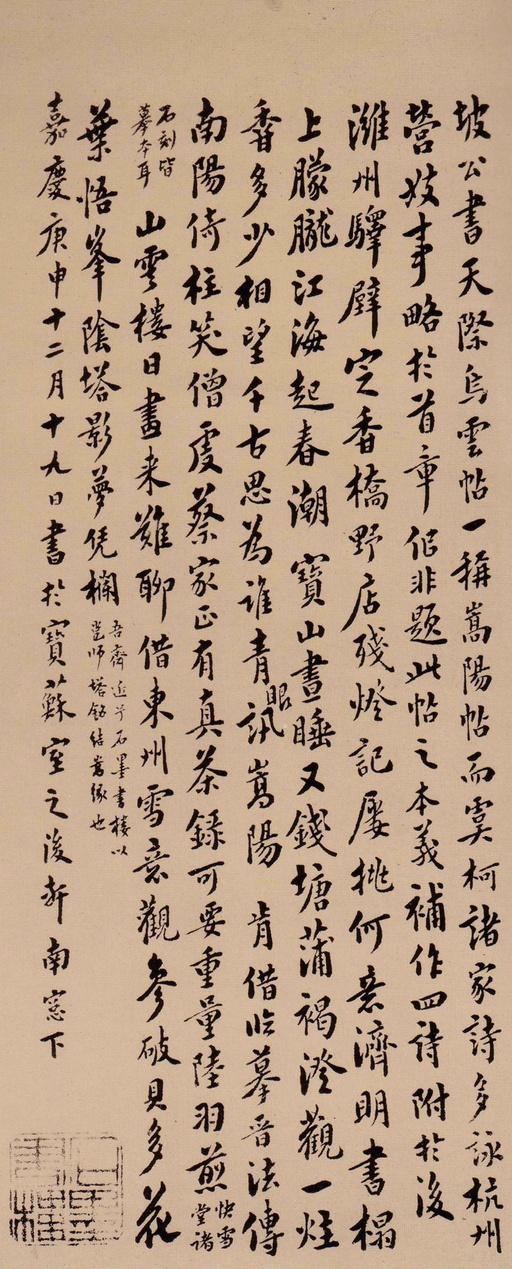 坡公書天際烏雲帖一稱嵩陽帖而虞柯諸家詩多詠杭州
營妓事略於首章似非題此帖之本義補作四詩附於後
濰州驛壁定香橋野店殘燈記屢挑何意濟明書榻
上朦朧江海起春潮 寶山晝睡又錢塘蒲褐澄觀一炷
香多少相望千古思為誰青眼訊嵩陽 肯借臨摹晉法傳
南陽倚柱笑僧虔蔡家正有真茶錄可要重量陸羽煎 快雪堂諸
石刻皆摹本耳 山雲樓日畫來難聊借東州雪意觀參破貝多花
葉悟峯陰塔影夢凭欄 吾齋近與石墨書樓以
豈師塔銘結嵩緣也
嘉慶庚申十二月十九日書於寶蘇室之後軒南窓下